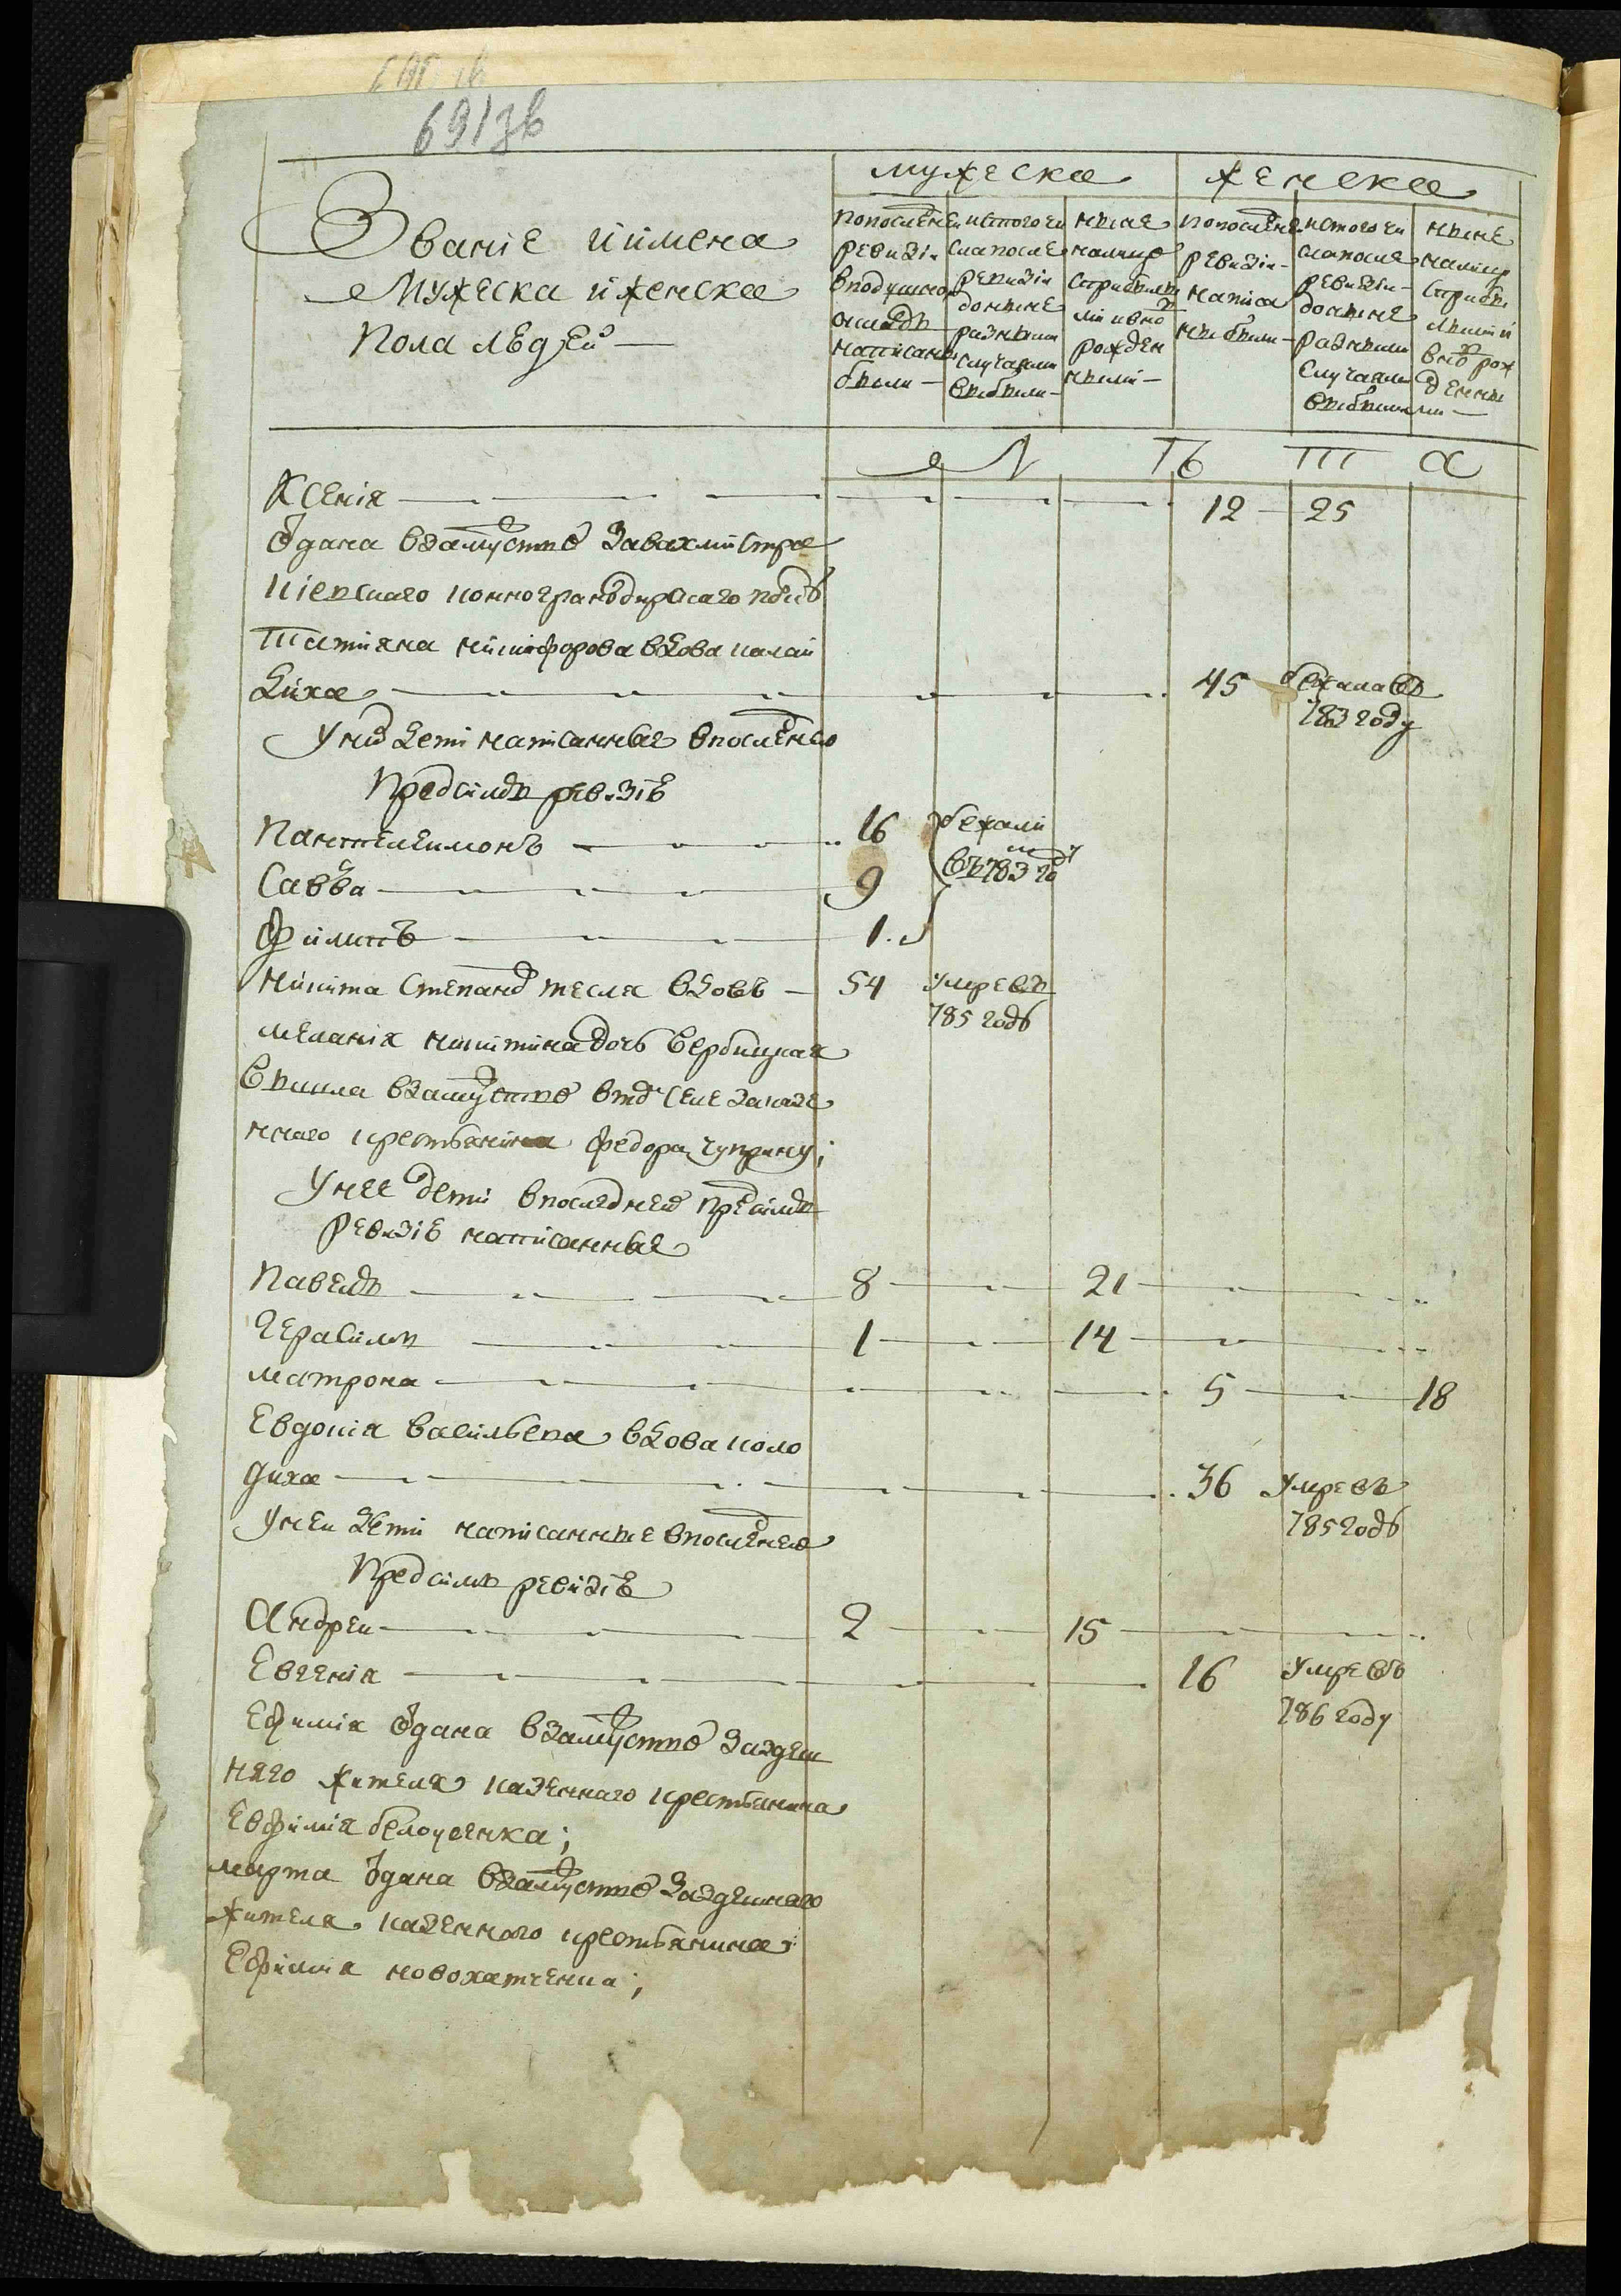 691зв
мужеска женска
Званіе иімена
Мужеска иженска
Пола людей
попослѣдней ревизіи вподушной окладъ написаны были
изтого числа после ревизіи доныне разными случаями выбыли
ныне налицо сприбылыми ивновь рожденными
попоследней ревизіи написаны были
изтого числа после ревизіи доныне разными случаями выбыли
ныне налицо сприбылыми и вновь рожденными
Л Ѣ Т А
Ксенія 12 25
ѿдана взамуство Завахмистра
Кіевскаго конногранодирскаго полку
Татияна никифорова вдова калай
диха 45 бежала въ
783 году
Унее дети написанныя впоследнею
Предсимъ ревизіѣ
Пантелеимонъ 16 бежали
въ 783 году
Савва 9
Филипъ 1
Никита Степановъ тесля вдовъ 54 умре въ
785 годѣ
меланія никитина дочь вербицкая
вышла взамуство втомъ селе заказе
ннаго крестьянина федора чуприну;
Унее дети впоследней предсимъ
ревизіѣ написанныя
Павелъ 8 21
Герасимъ 1 14
матрона 5 18
Евдокія васильева вдова коло
диха 36 умре въ
785 годѣ
Унеи дети написанные впоследнеи
Предсимъ ревизіѣ
Андреи 2 15
Евгенія 16 умре въ
786 году
Ефимія ѿдана взамуство заздеш
няго жителя казеннаго крестьянина
Евфимія белоусенка;
марта ѿдана взамуство Заздешняго
жителя казенного крестьянина
Ефимія новохатченка;